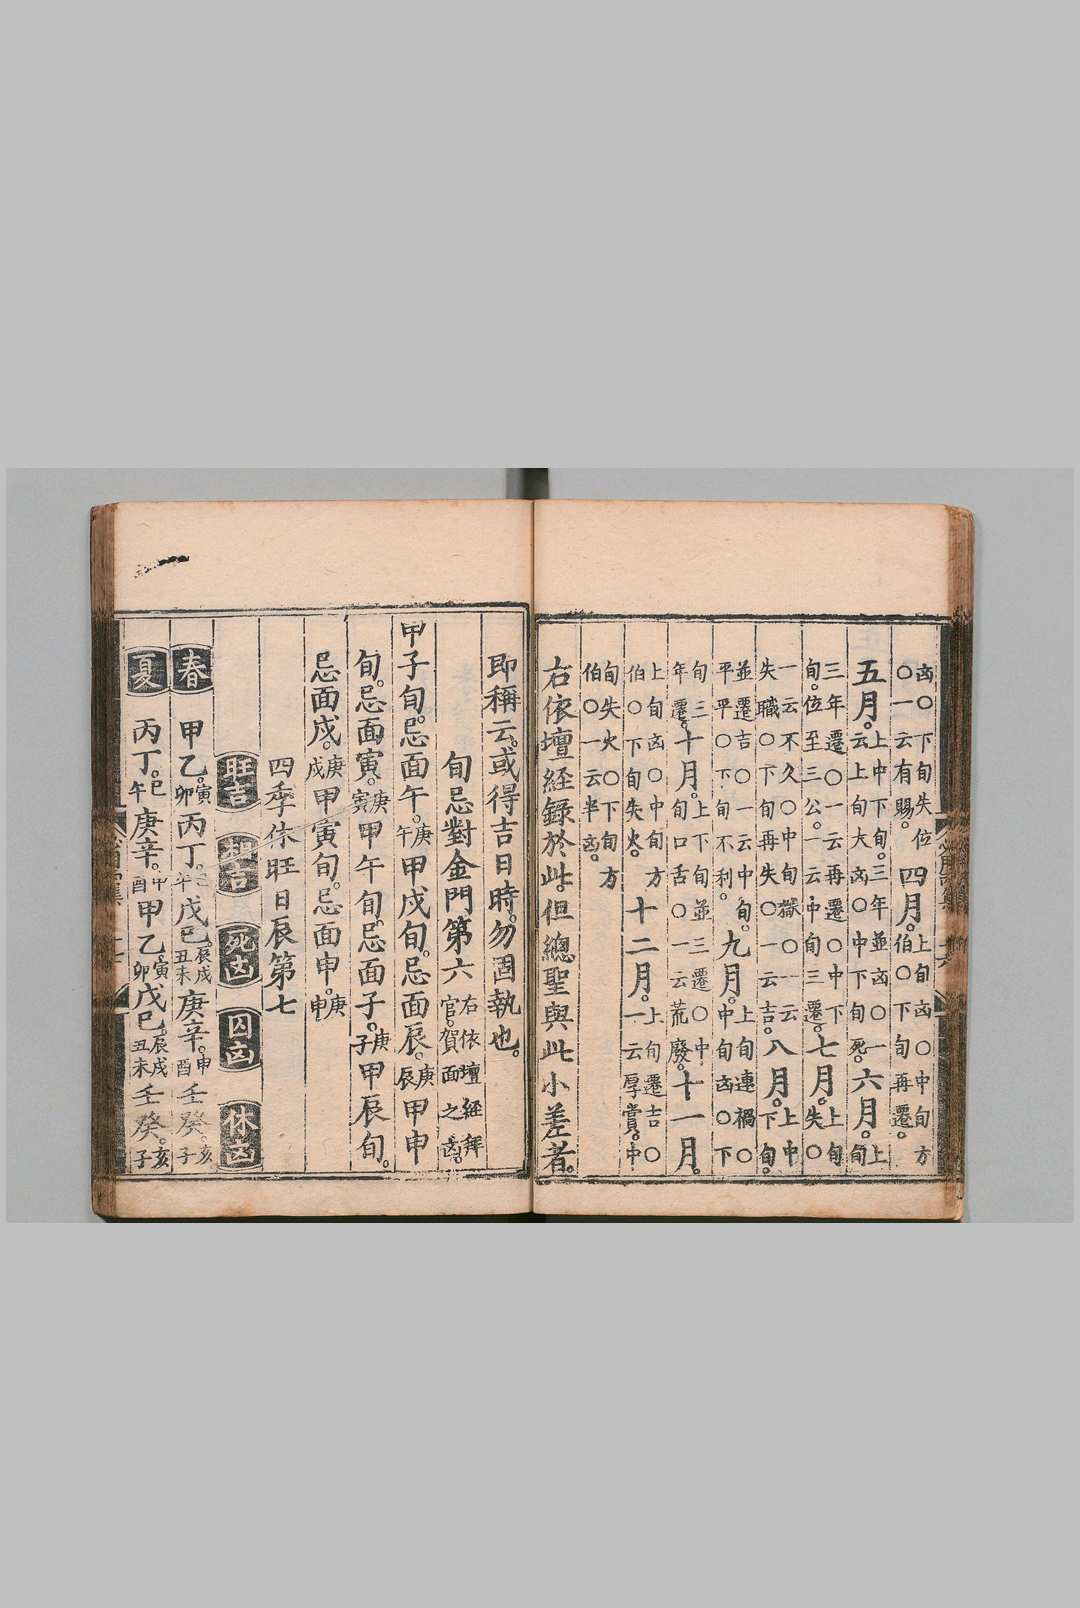 凶○下旬失位○一云有賜。四月。上旬凶○中旬方伯○下旬再遷。
五月。上中下旬。三年並凶○一云上旬大凶○中下旬死。六月。上旬
三年遷○一云再遷○中下旬。位至三公。一云中旬三遷。七月。上旬失○
一云不久○中旬獄○一云失職○下旬再失○一云吉。八月。上中下旬。
並遷吉○一云中旬。平平○下旬不利。九月。上旬連禍○中旬凶○下
旬三年遷。十月。上下旬並三遷○中旬口舌○一云荒廢。十一月。
上旬凶○中旬方伯○下旬失火。十二月。上旬遷吉○一云厚賞。中
旬失火○下旬方伯○一云半凶。
右依壇經錄於此。但總聖與此小差者。
即稱云。或得吉日時。勿固執也。
旬忌對金門第六右依壇經拜官。賀面之凶。
甲子旬。忌面午。庚午甲戌旬。忌面辰。庚辰甲申
旬。忌面寅。庚寅甲午旬。忌面子。庚子甲辰旬。
忌面戌。庚戌甲寅旬。忌面申。庚申
四季休旺日辰第七
旺吉 相吉 死凶 囚凶 休凶
春 甲乙。寅卯丙丁。巳午戊己。辰戌丑未庚辛。申酉壬癸。亥子
夏 丙丁。巳午庚辛。申酉甲乙。寅卯戊己。辰戌丑未壬癸。亥子